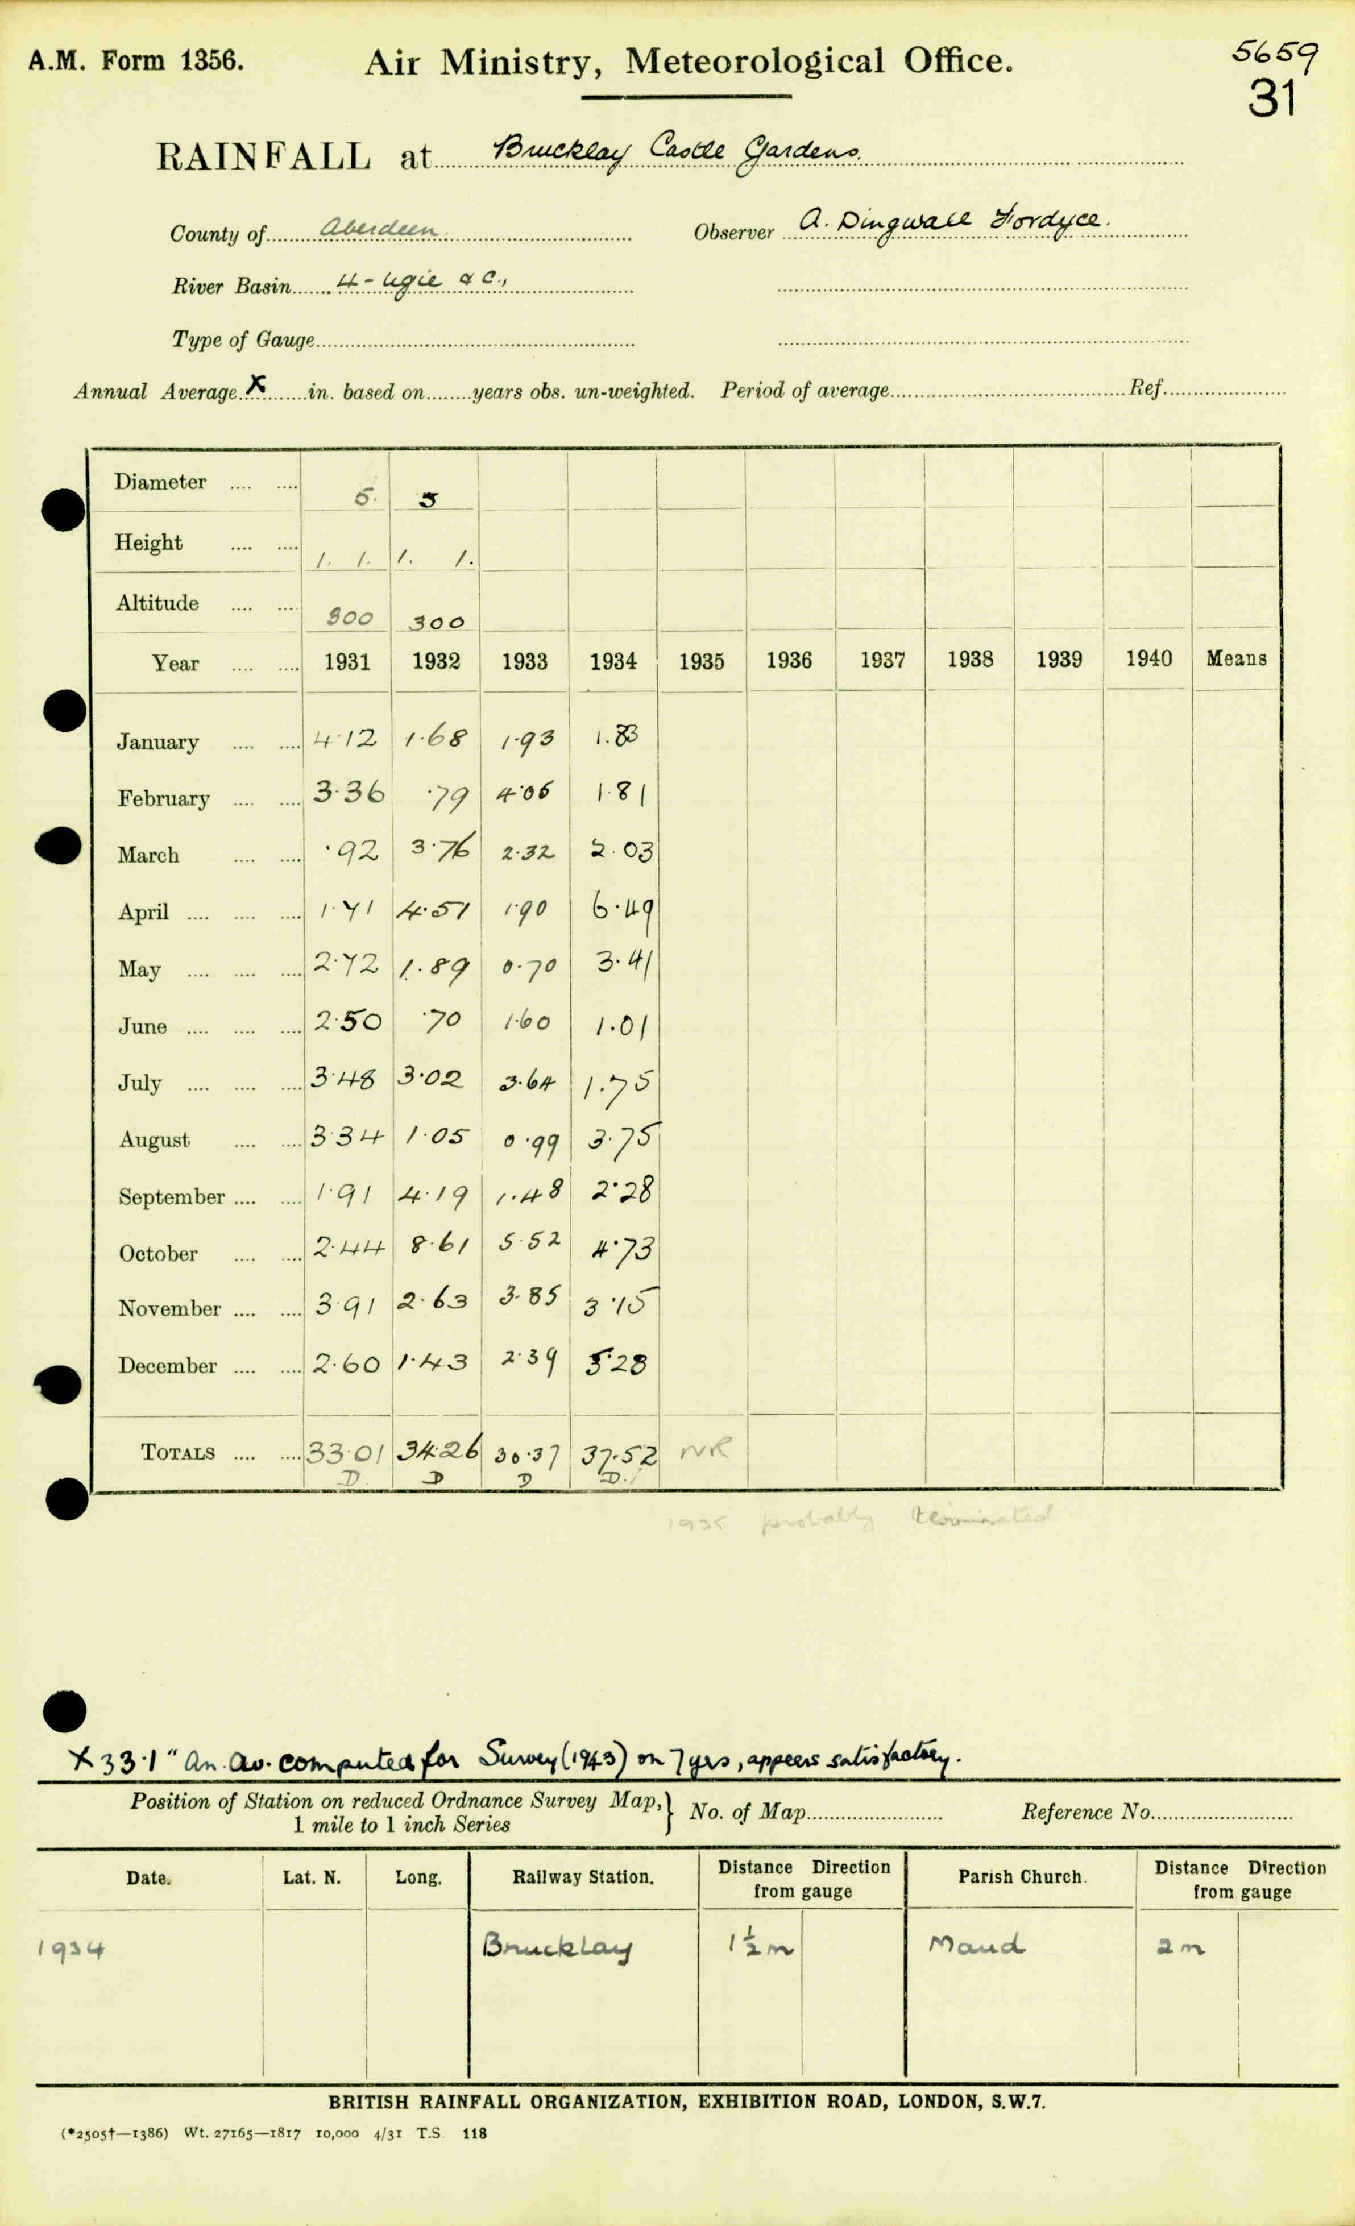 A.M. Form 1356. Air Ministry, Meteorological Office. 5659
31
RAINFALL at Brucklay Castle Gardens.
County of Aberdeen Observer A. Dingwall Fordyce.
River Basin 4 - Ugie & c.,
Type of Gauge
Annual Average X in. based on years obs. un-weighted. Period of average Ref.
Diameter 5. 5
Height 1. 1. 1. 1.
Altitude 300 300
Year 1931 1932 1933 1934 1935 1936 1937 1938 1939 1940 Means
January 4·12 1·68 1·93 1.83
February 3·36 ·79 4·05 1·81
March ·92 3·76 2·32 2.03
April 1·71 4·51 1·90 6·49
May 2·72 1.89 0·70 3·41
June 2·50 ·70 1·60 1.01
July 3·48 3·02 3·64 1.75
August 3·34 1·05 0·99 3·75
September 1·91 4·19 1·48 2·28
October 2·44 8·61 5·52 4·73
November 3·91 2·63 3·85 3·15
December 2·60 1·43 2·39 5·28
TOTALS 33·01 34·26 30·37 37·52 NR
D. D D D.
1935 probably terminated
X 33·1" An. Av. computed for Survey (1943) on 7 yrs, appears satisfactory.
Position of Station on reduced Ordnance Survey Map, } No. of Map Reference No.
1 mile to 1 inch Series
Date. Lat. N. Long. Railway Station. Distance Direction from gauge Parish Church. Distance Direction from gauge
1934 Brucklay 1½ m Maud 2 m
BRITISH RAINFALL ORGANIZATION, EXHIBITION ROAD, LONDON, S.W.7.
(*2505†—1386) Wt. 27165—1817 10,000 4/31 T.S. 118